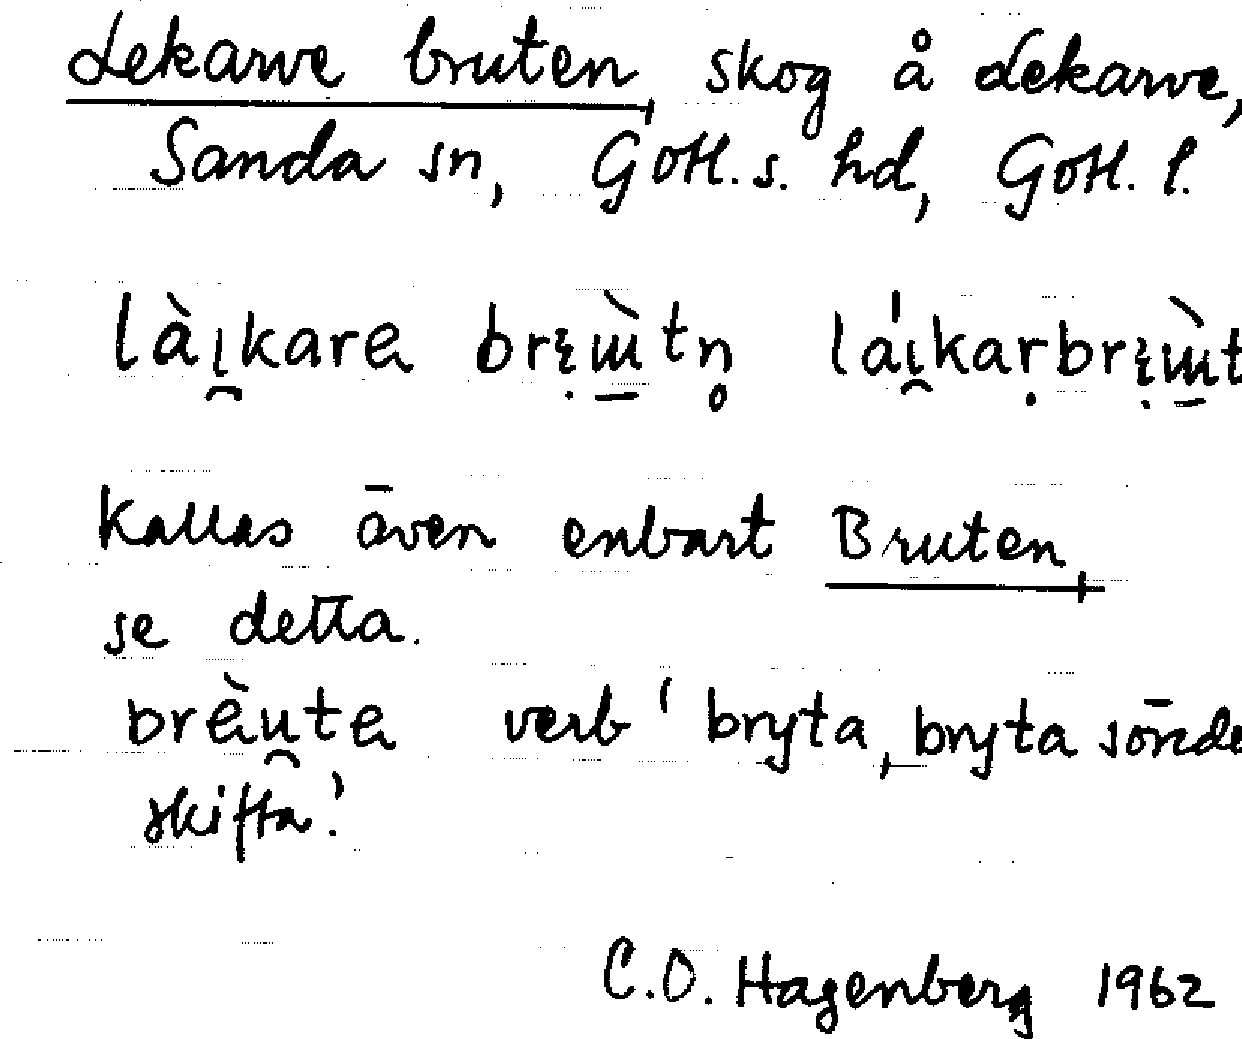 Lekarve bruten, skog å Lekarve,
Sanda sn, Gotl. s. hd, Gotl. l.
kallas även enbart Bruten,
se detta.
verb 'bryta, bryta sönde
skifta'.
C.O. Hagenberg 1962